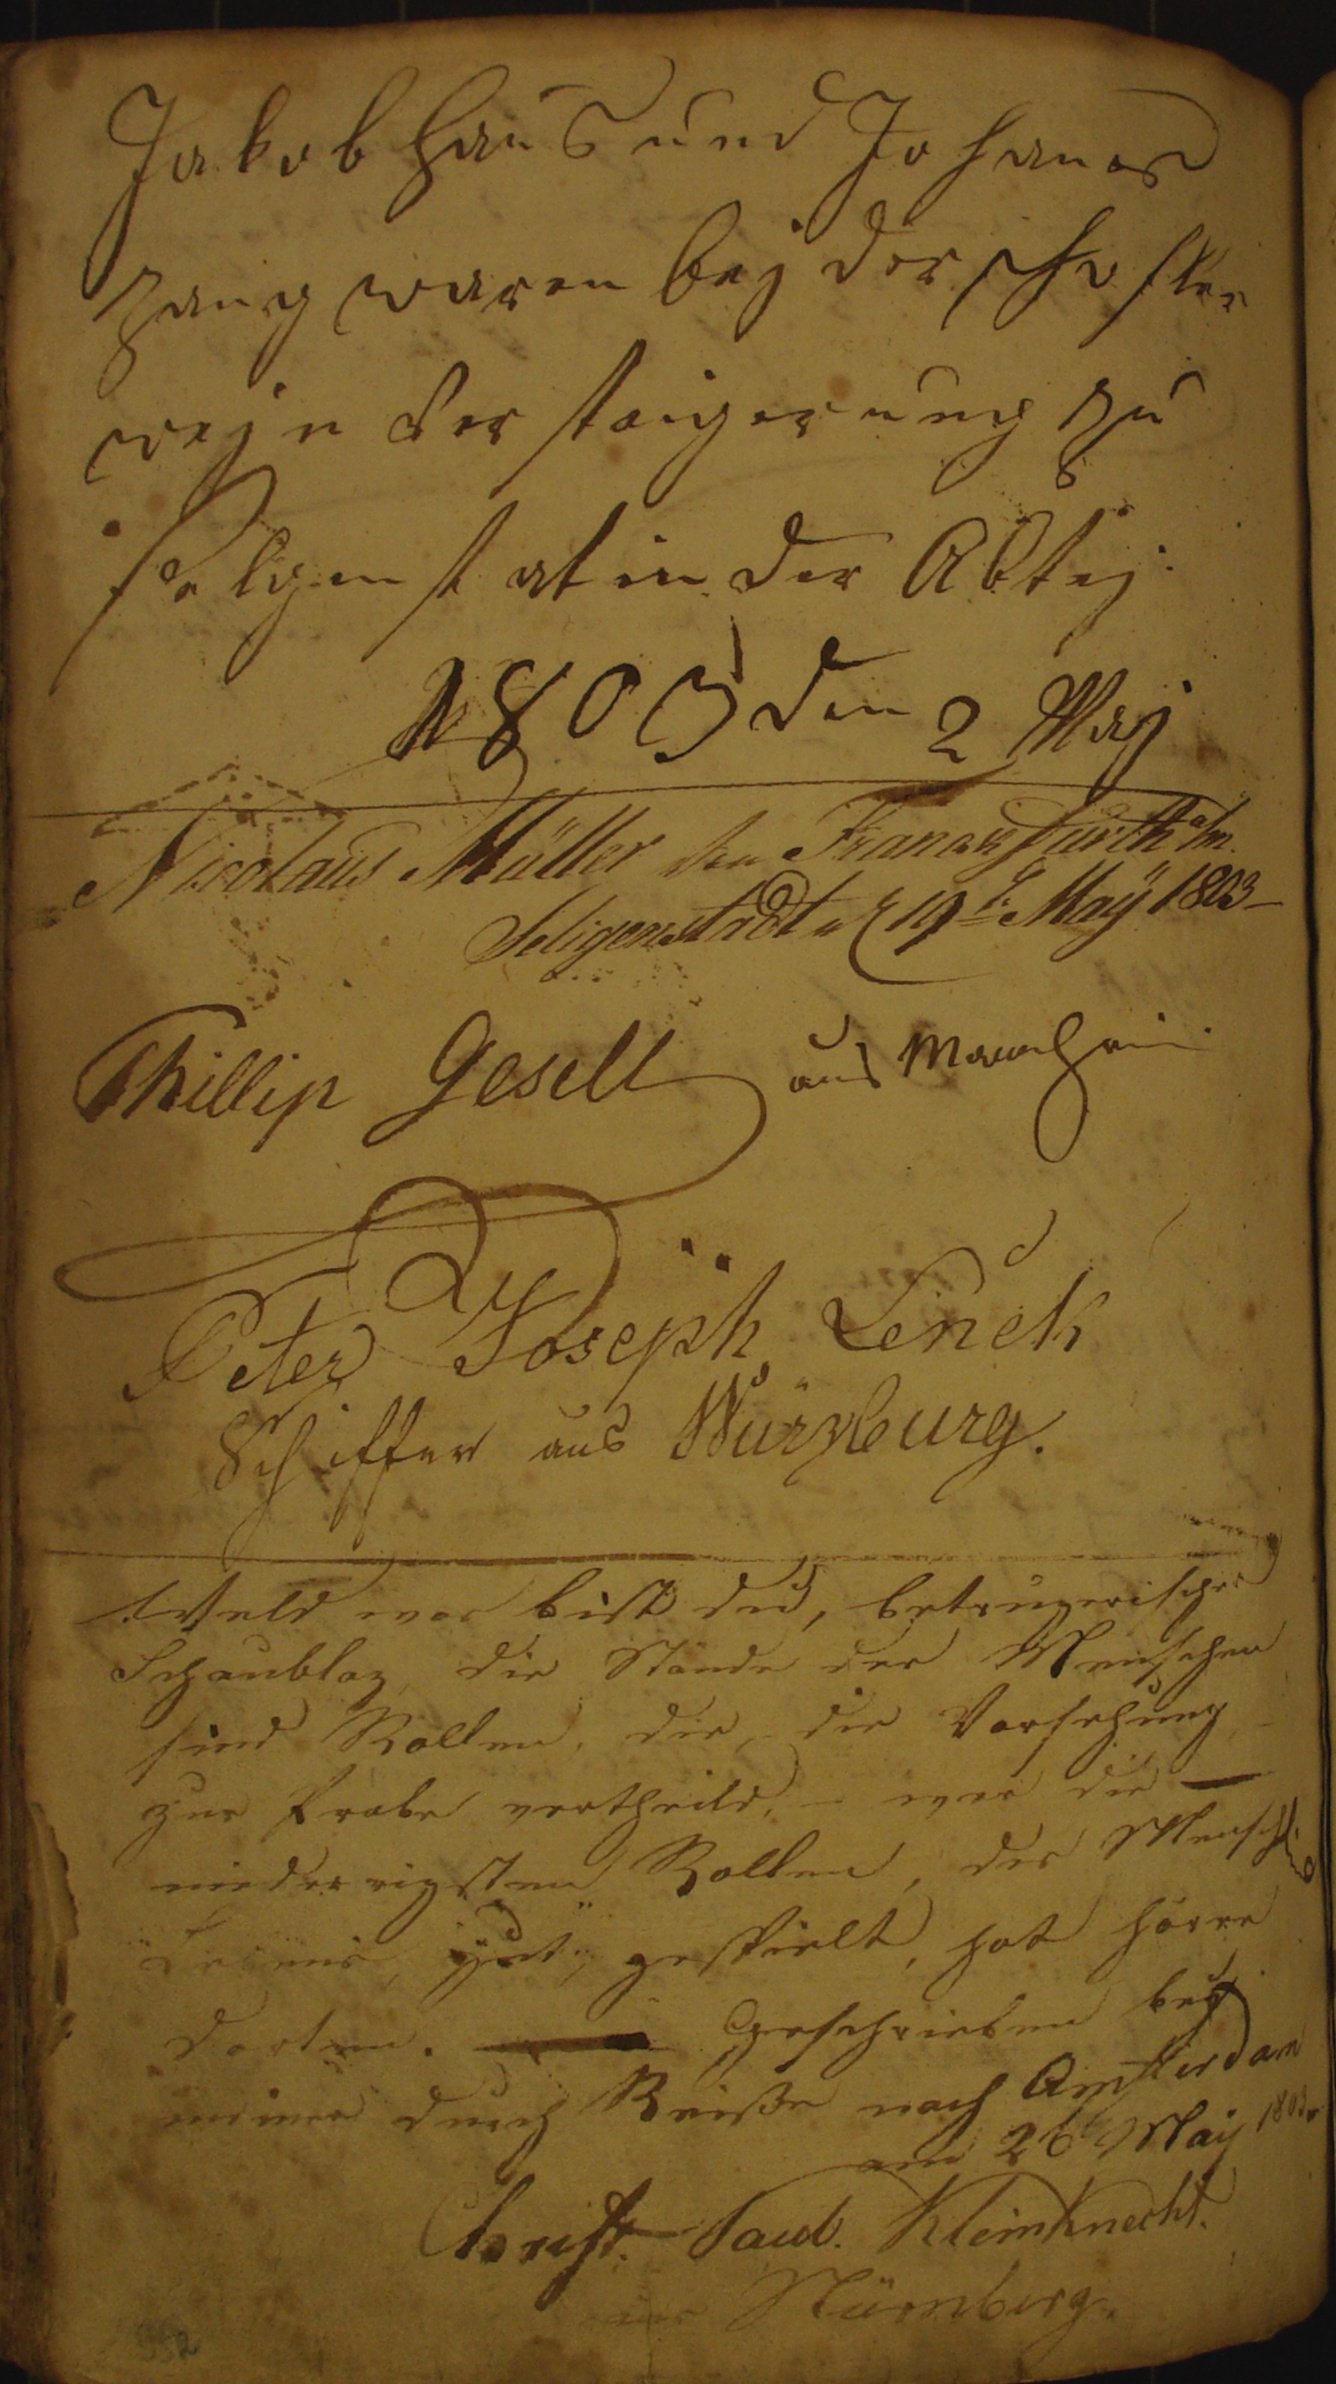 Jakob Haus und Johanes
Zang waren bej der
wejn Versteigerung zu
selgenstat in der Abtej
1803 den 2 Maj
Nicolaus Müller von Francksfurth a/m
Seligenstadt d 19t May 1803
Phillip Gesell aus Manheim
Peter Joseph Lenck
Schiffer aus Würzburg.
Weld was bist du, betrügerischer
Schaublaz, die Stände der Menschen
sind Rollen, die, die Vorsehung
zur Probe vertheild, - wer die
niederrigsten Rollen, des Menschlich
Lebens, gut, gespielt, hat
dorten. Geschrieben bey
meiner durch Reiße nach Amsterdam
am 26t May 1803
Christ. Paul. Kleinknecht.
aus Nürnberg.